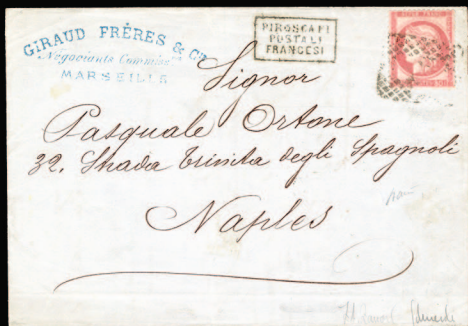 GIRAUD FRÈRES & Cie
Négociants Commiss.res
MARSEILLE
PIROSCAFI
POSTALI
FRANCESI
Signor
Pasquale Ortone
32. Strada Trinita degli Spagnoli
Naples